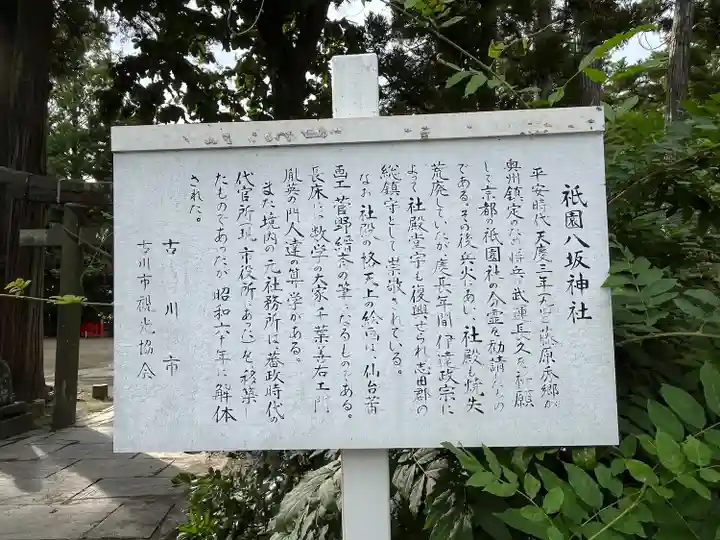 祇園八坂神社
平安時代 天慶三年 藤原秀郷が
奥州鎮定のため将兵の武運長久を祈願
して京都の祇園社の分霊を勧請したもの
である。その後兵火にあい、社殿も焼失
荒廃していたが、慶長年間 伊達政宗に
よって社殿堂宇が復興せられ志田郡の
総鎮守として崇敬されている。
なお 社殿の格天上の絵画は、仙台藩
画工 菅野 の筆になるものである。
長床には 数学の大家 千葉善右エ門
胤英の門人達の算学がある。
また境内の元社務所は 藩政時代の
代官所(現 市役所にあった)を移築し
たものであったが 昭和六十年に解体
された。
古川市
古川市観光協会